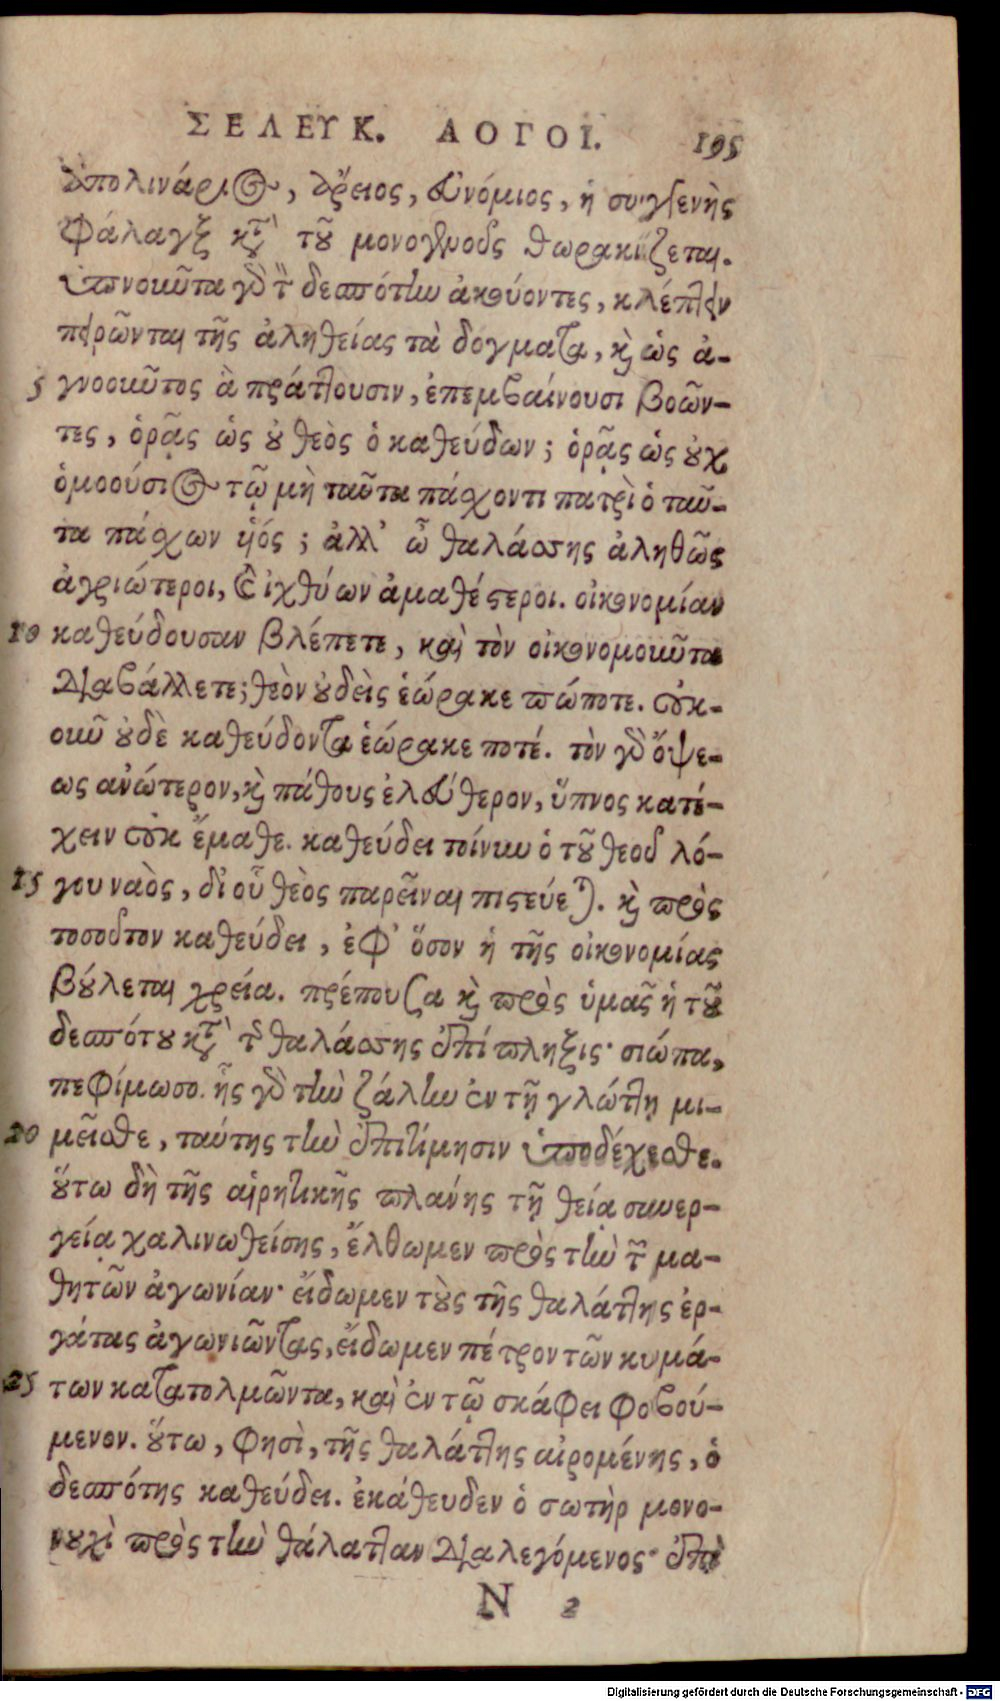 ΣΕΛΕΥΚ. ΛΟΓΟΙ. 195
Ἀπολινάριος, Ἄρειος, Εὐνόμιος, ἡ συγγενὴς
Φάλαγξ κατὰ τοῦ μονογενοῦς θωρακίζεται.
ὑπνοῦντα γὰρ τὸν δεσπότην ἀκούοντες, κλέπτειν
πειρῶνται τῆς ἀληθείας τὰ δογματα, καὶ ὡς ἀ-
5 γνοοῦντος ἃ πράττουσιν, ἐπεμβαίνουσι βοῶν-
τες, ὁρᾷς ὡς οὐ θεὸς ὁ καθεύδων; ὁρᾷς ὡς οὐχ
ὁμοούσιος τῷ μὴ ταῦτα πάσχοντι πατρὶ ὁ ταῦ-
τα πάσχων υἱός; ἀλλ' ὦ θαλάσσης ἀληθῶς
ἀγριώτεροι, καὶ ἰχθύων ἀμαθέστεροι. οἰκονομίαν
10 καθεύδουσαν βλέπετε, καὶ τὸν οἰκονομοῦντα
διαβάλλετε; θεὸν οὐδεὶς ἑώρακε πώποτε. οὐκ-
οῦν οὐδὲ καθεύδοντα ἑώρακε ποτέ. τὸν γὰρ ὄψε-
ως ἀνώτερον, καὶ πάθους ἐλεύθερον, ὕπνος κατέ-
χειν οὐκ ἔμαθε. καθεύδει τοίνυν ὁ τοῦ θεοῦ λό-
15 γου ναὸς, δι' οὗ θεὸς παρεῖναι πιστεύεται. καὶ πρὸς
τοσοῦτον καθεύδει, ἐφ' ὅσον ἡ τῆς οἰκονομίας
βούλεται χρεία. πρέπουσα καὶ πρὸς ὑμᾶς ἡ τοῦ
δεσπότου κατὰ τῆς θαλάσσης ἐπίπληξις· σιώπα,
πεφίμωσο. ἧς γὰρ τὴν ζάλην ἐν τῇ γλώττῃ μι-
20 μεῖσθε, ταύτης τὴν ἐπιτίμησιν ὑποδέχεσθε.
οὕτω δὴ τῆς αἱρητικῆς πλάνης τῇ θείᾳ συνερ-
γείᾳ χαλινωθείσης, ἔλθωμεν πρὸς τὴν τῶν μα-
θητῶν ἀγωνίαν· εἴδωμεν τοὺς τῆς θαλάττης ἐρ-
γάτας ἀγωνιῶντας, εἴδωμεν πέτρον τῶν κυμά-
25 των κατατολμῶντα, καὶ ἐν τῷ σκάφει φοβού-
μενον. οὕτω, φησὶ, τῆς θαλάττης αἰρομένης, ὁ
δεσπότης καθεύδει. ἐκάθευδεν ὁ σωτὴρ μονο-
νουχὶ πρὸς τὴν θάλατταν διαλεγόμενος· ἐπὶ
N 2
Digitalisierung gefördert durch die Deutsche Forschungsgemeinschaft - DFG